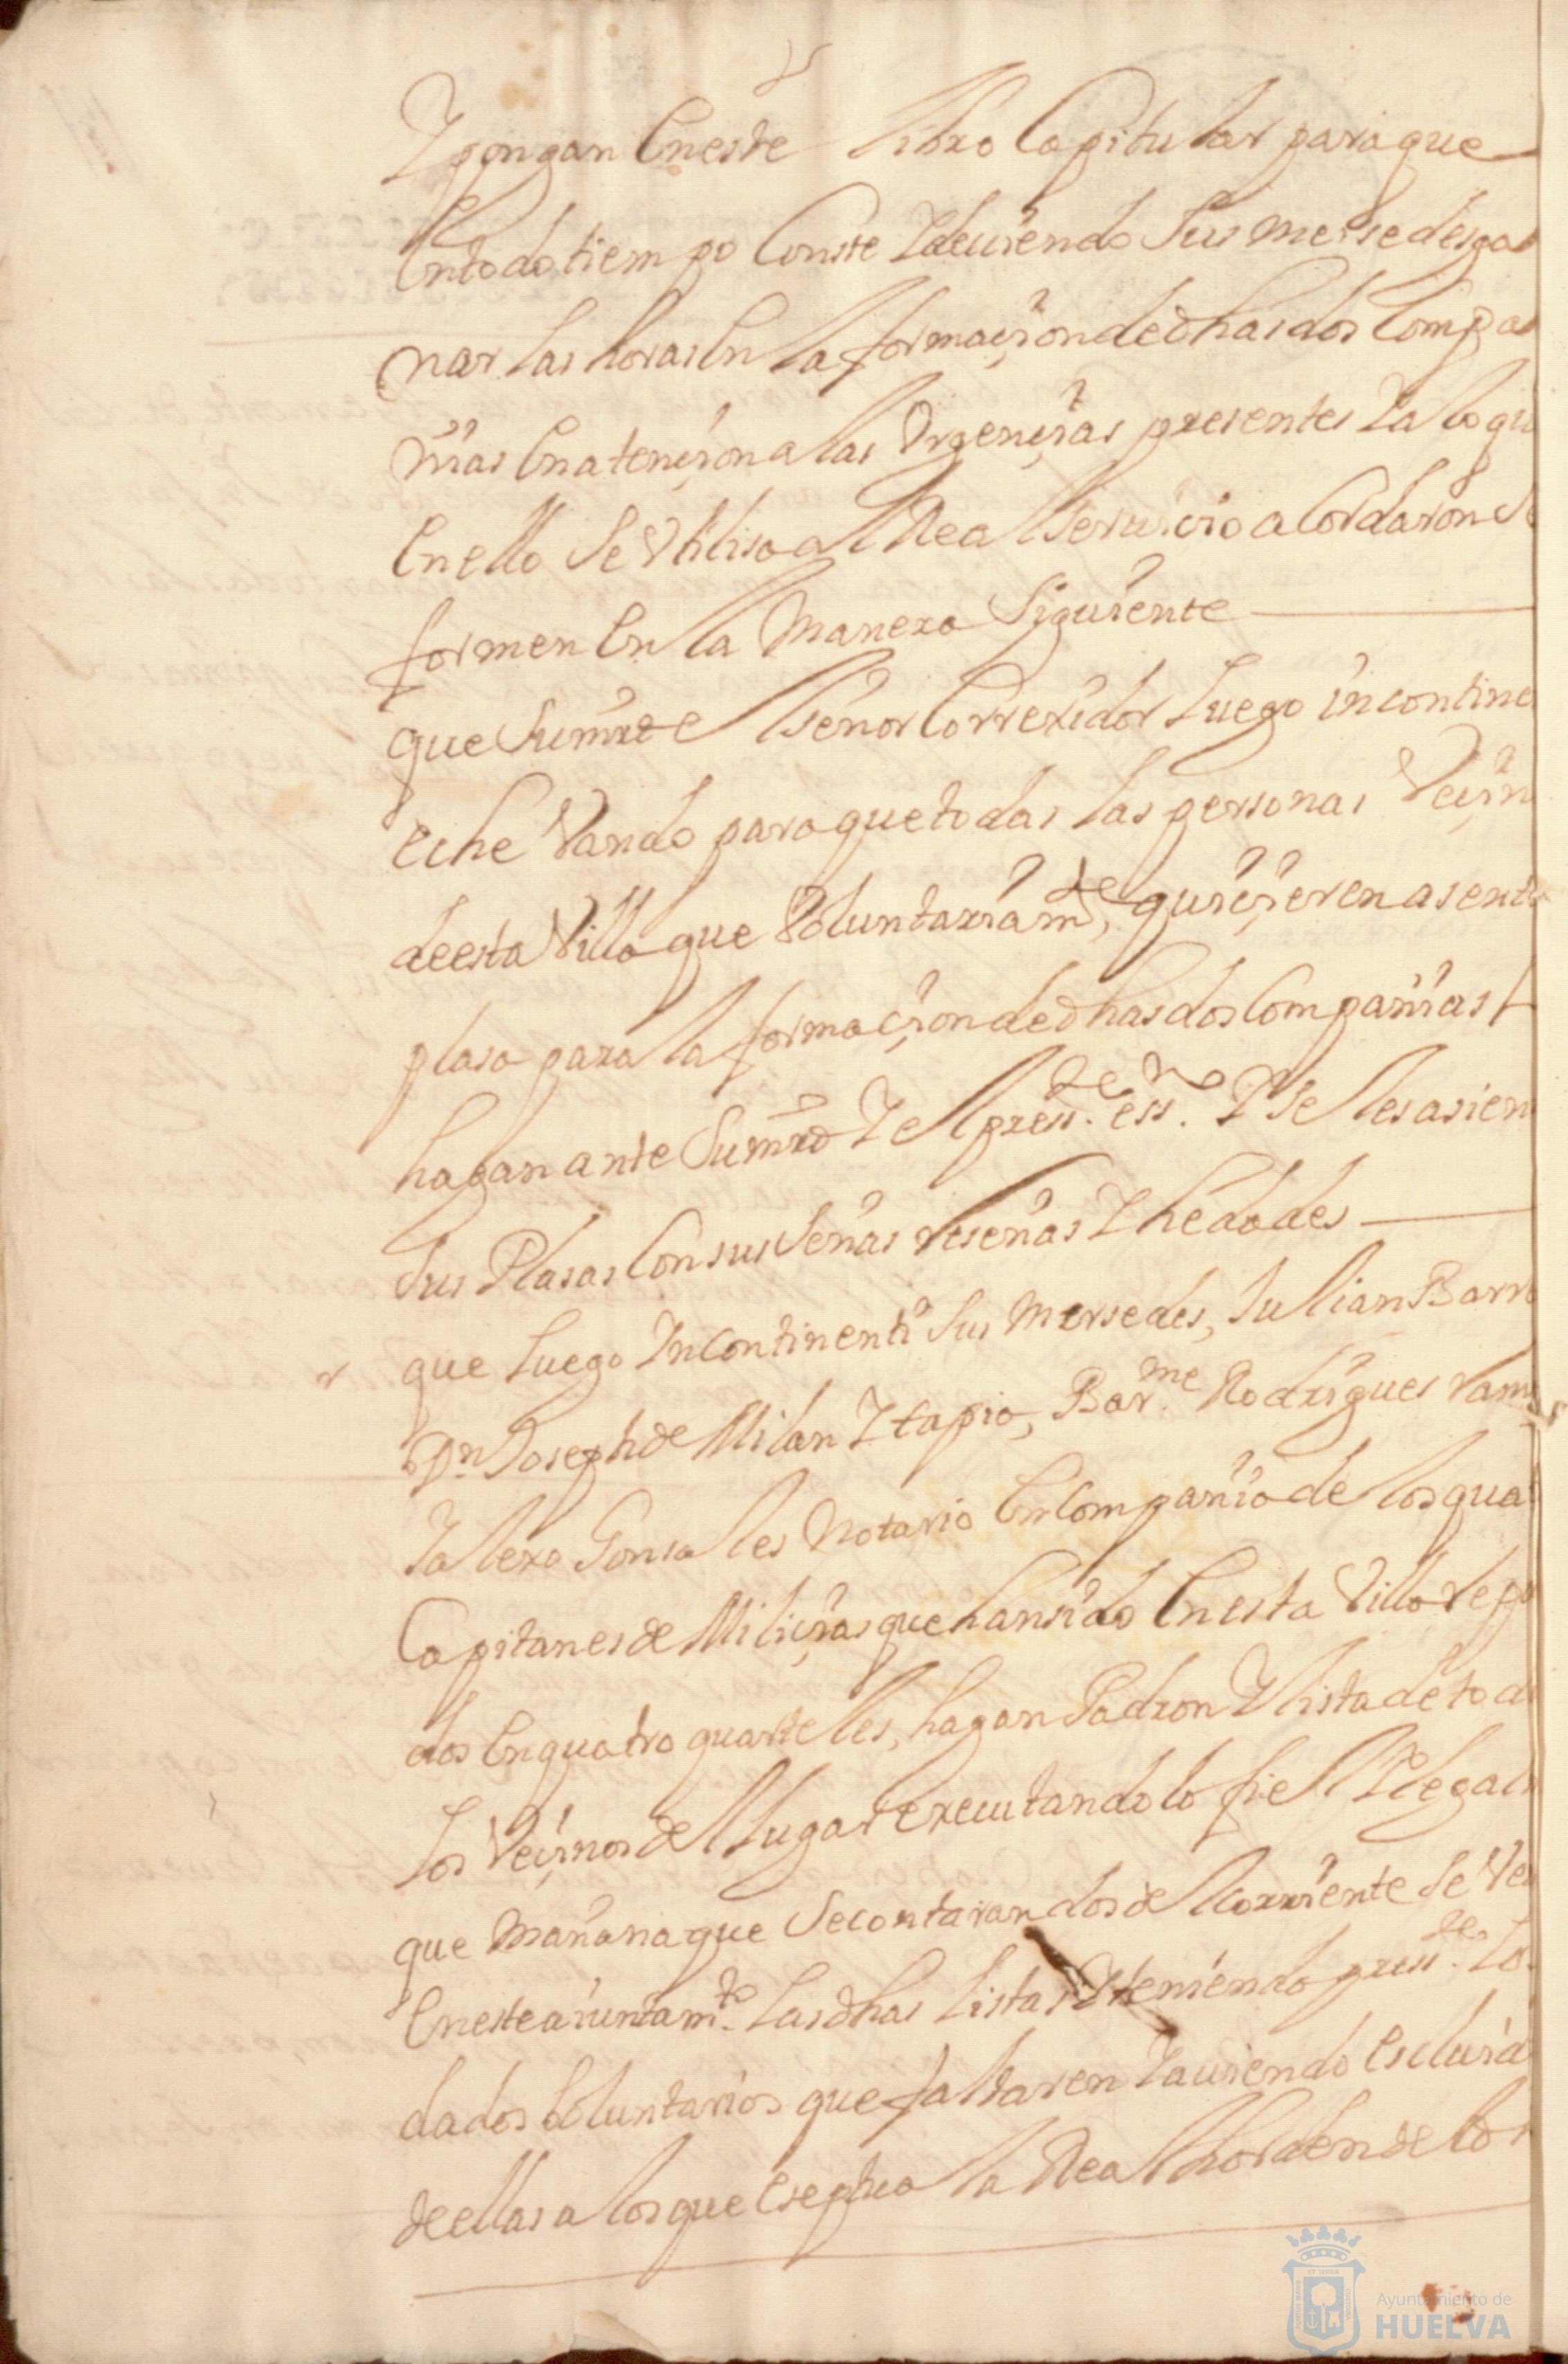 Y pongan En este libro Capitular para que
En todo tiempo Conste Y deuiendo Sus mersedes ga
nar las horas En la formacion de dhas dos Compa
ñias En atencion a las Vrgencias presentes Y a lo qu
En ello Se Vtilisa al Real Seruicio aCordaron S
formen En la Manera Siguiente
que Su mrd el señor Correxidor Luego incontine
eche Vando para que todas las personas Vecin
de esta Villa que Voluntariamte quicieren asenta
plasa para la formacion de dhas dos Compañias l
hagan ante Su mrd Y el presste essno Y Se les asien
Sus Plasas Con sus Señas reseñas Y hedades
que Luego Incontinenti Sus Mersedes, Julian Barr
Dn Joseph de Milan Y tapia, Barme Rodrigues Vam
Y alexo Gonsales Notario En Compañia de los qua
Capitanes de Milicias que han sido En esta Villa repa
dos En quatro quarteles, hagan Padron Y lista de tod
Los Vecinos del Lugar executandolo fiel Y legal
que Mañana que Se contaran dos del corriente Se Ve
En este aiuntamto Las dhas listas Y teniendo presste Lo
dados Voluntarios que faltaren Y auiendo Escluid
de ellas a los que Eseptua la Real horden de lo
Ayuntamiento de
HUELVA